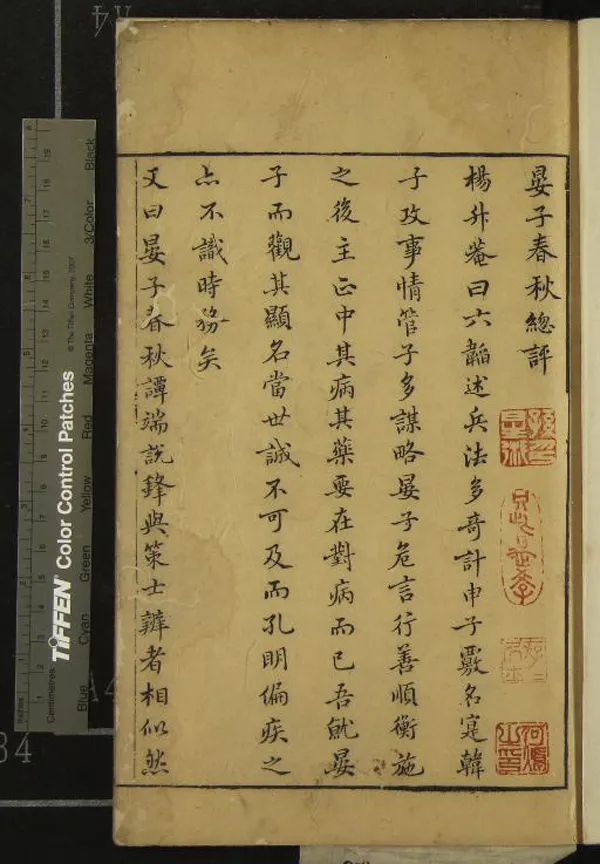 晏子春秋總評
楊升菴曰六韜述兵法多奇計申子覈名寔韓
子攻事情管子多謀略晏子危言行善順衡施
之後主正中其病其藥要在對病而已吾就晏
子而觀其顯名當世誠不可及而孔明偏疾之
亦不識時務矣
又曰晏子春秋譚端說鋒與策士辯者相似然
TIFFEN Color Control Patches
© The Tiffen Company, 2007
Inches
Centimetres
Blue Cyan Green Yellow Red Magenta White 3/Color Black